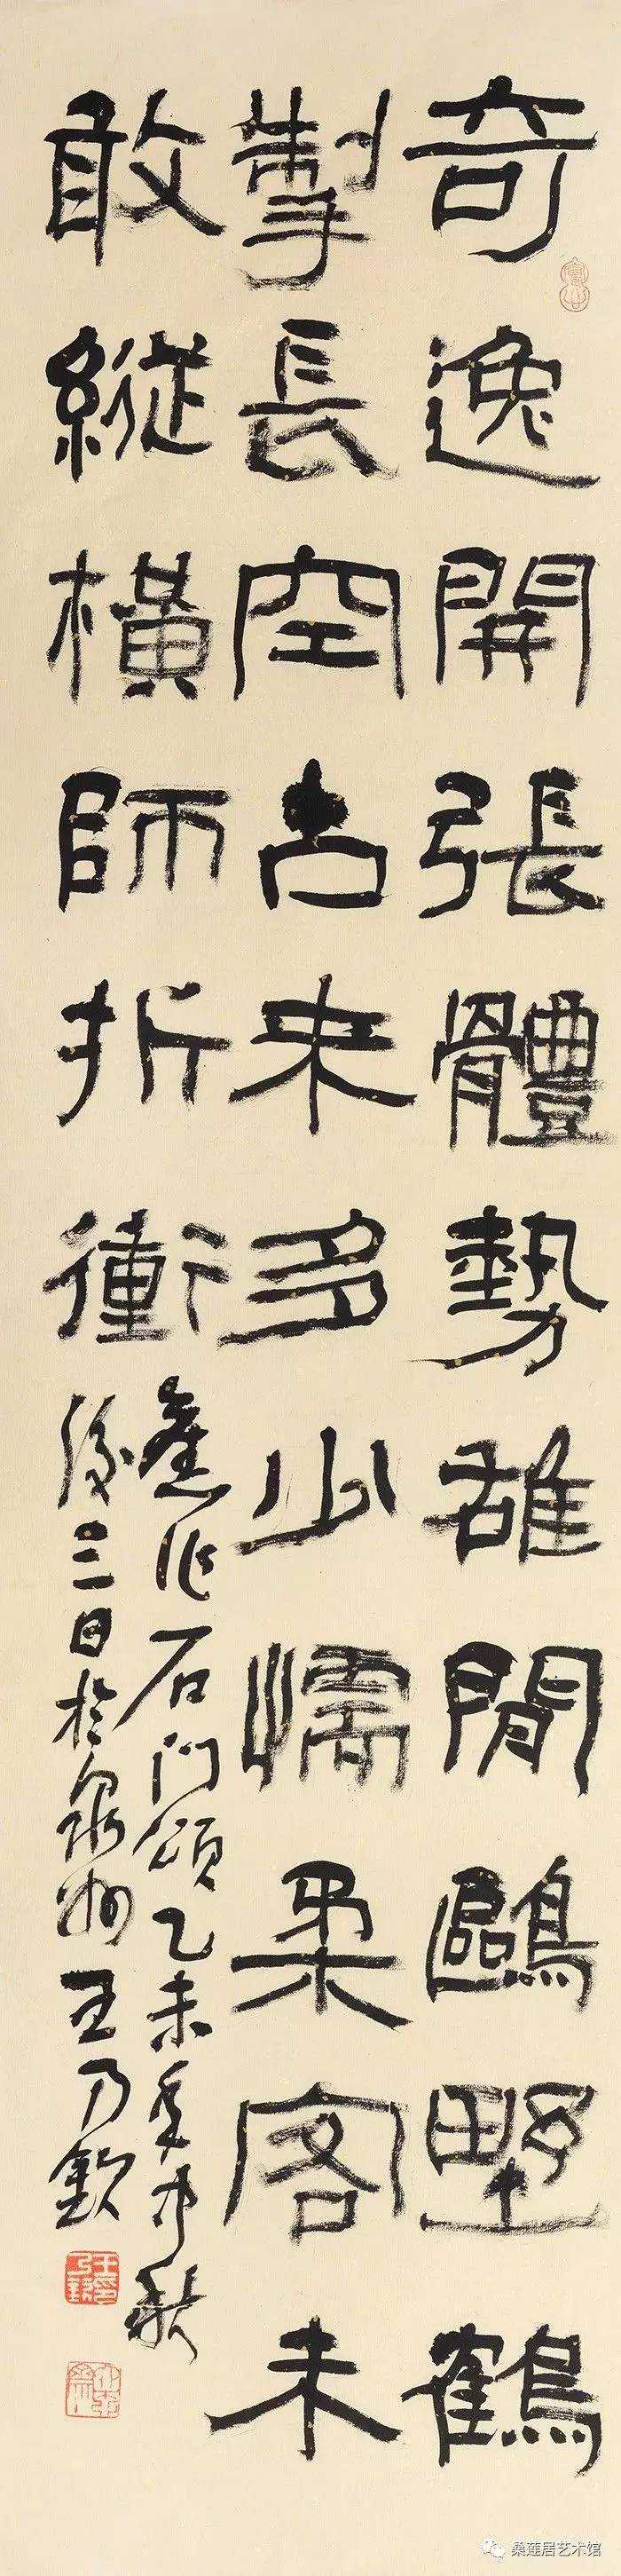 奇逸開張體勢雄閒鷗野鶴
掣長空古來多少懦柔客未
敢縱橫師折衝
舊作石門頌乙未年中秋
後三日於泉州王乃欽
桑蓮居艺术馆